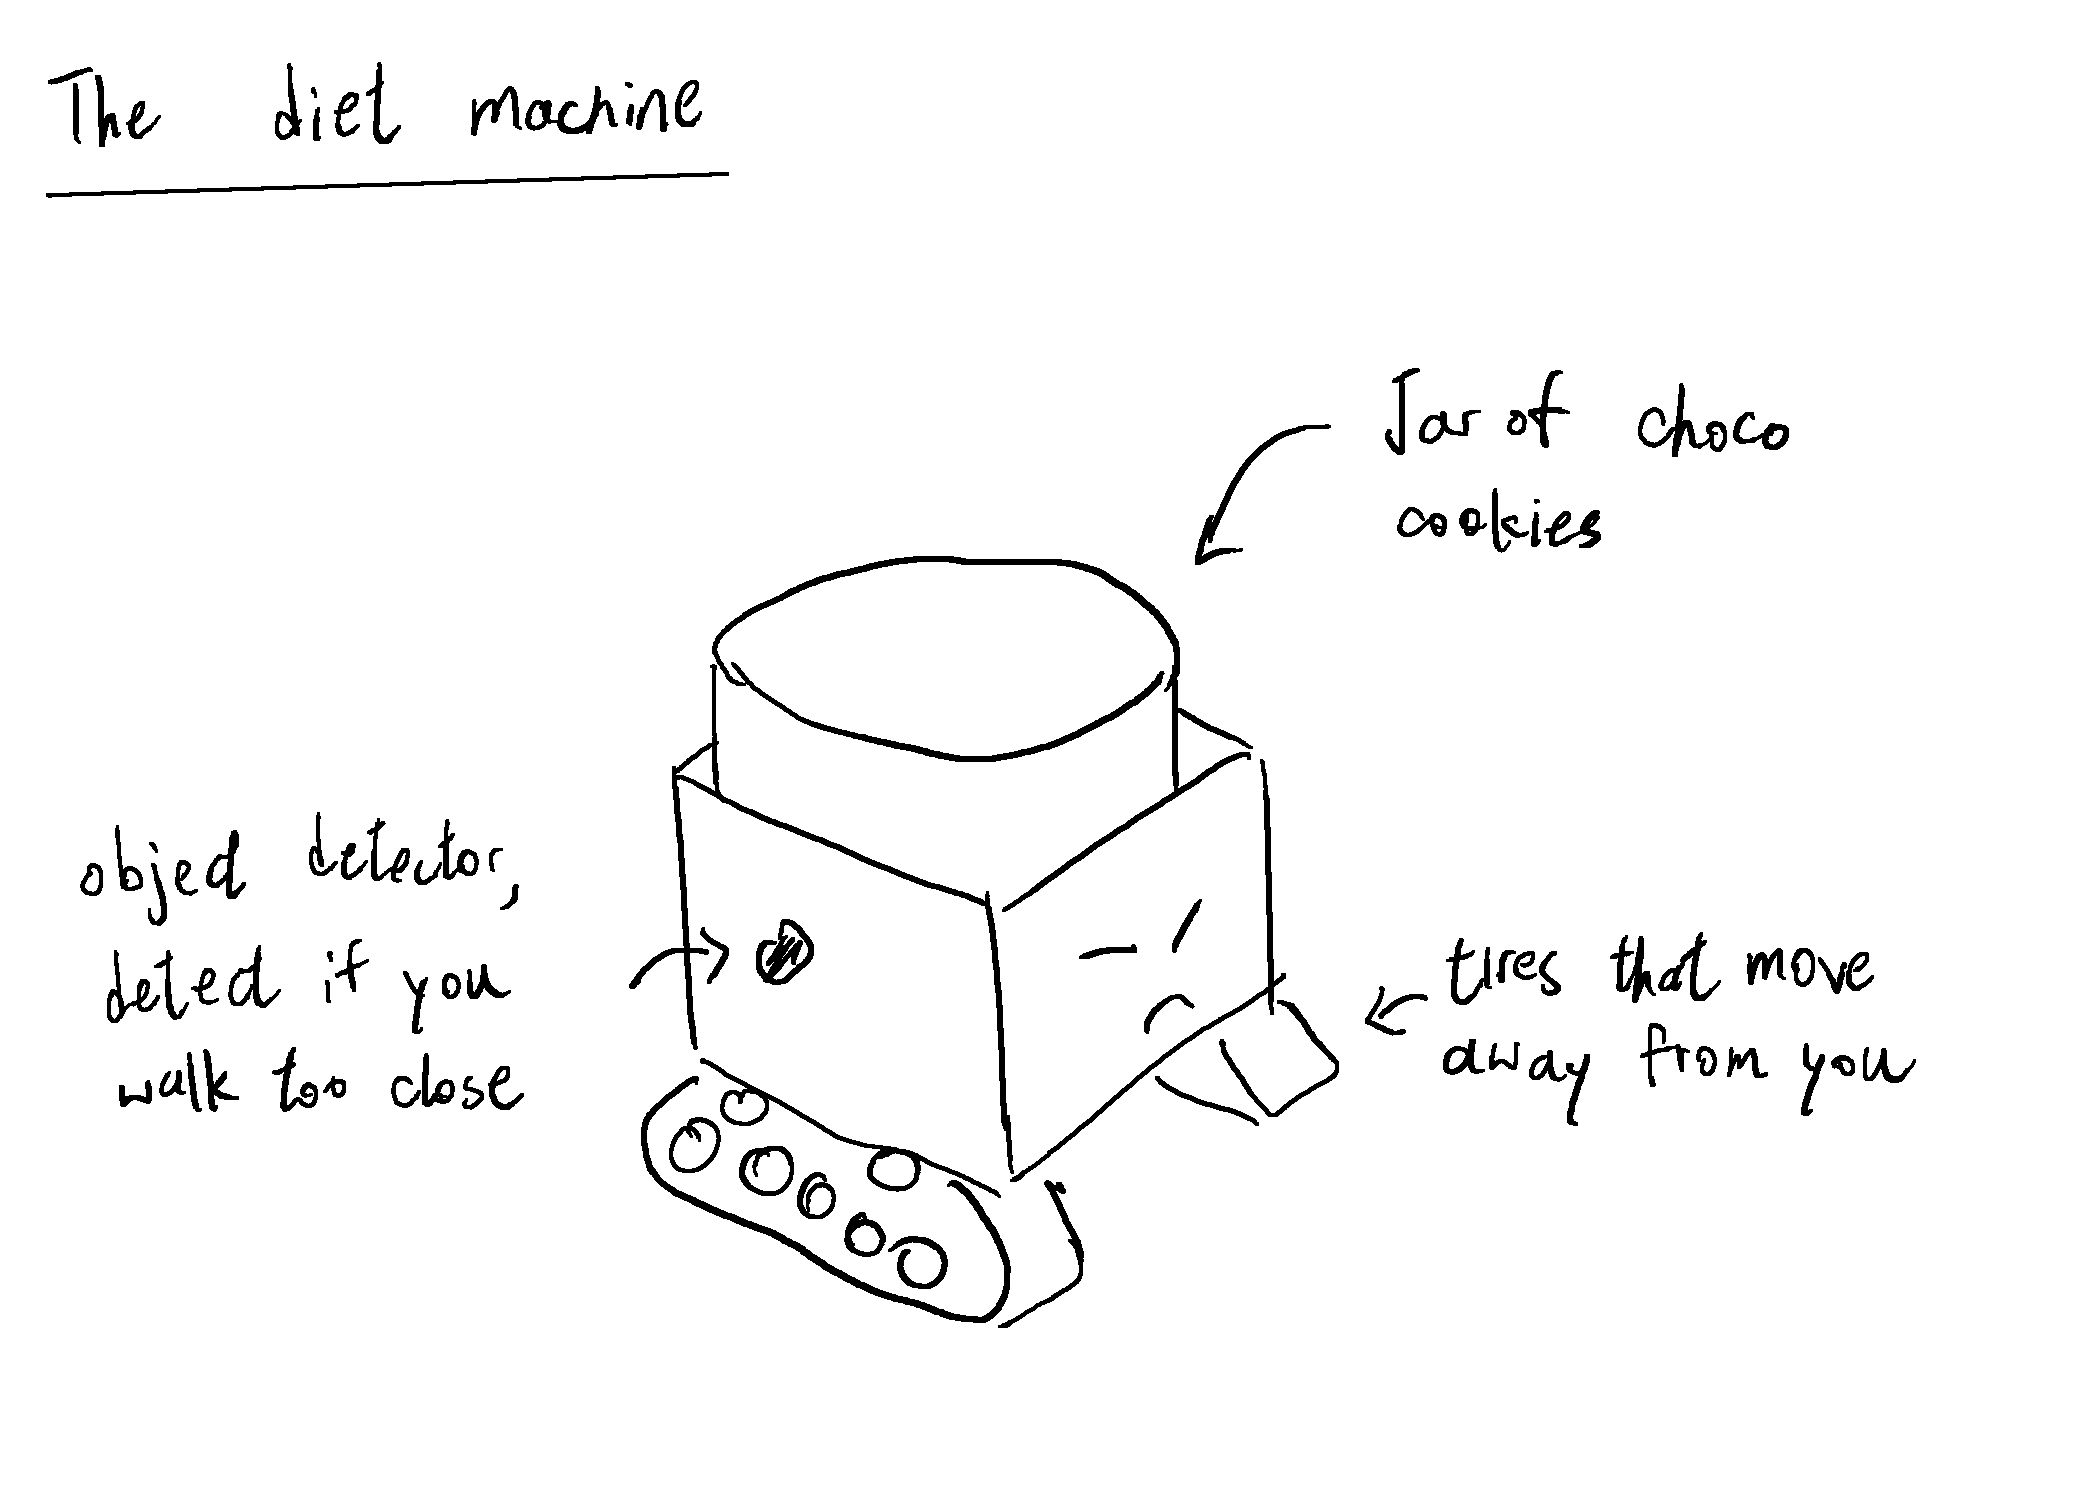 The diet machine
Jar of choco
cookies
object detector,
detect if you
walk too close
tires that move
away from you